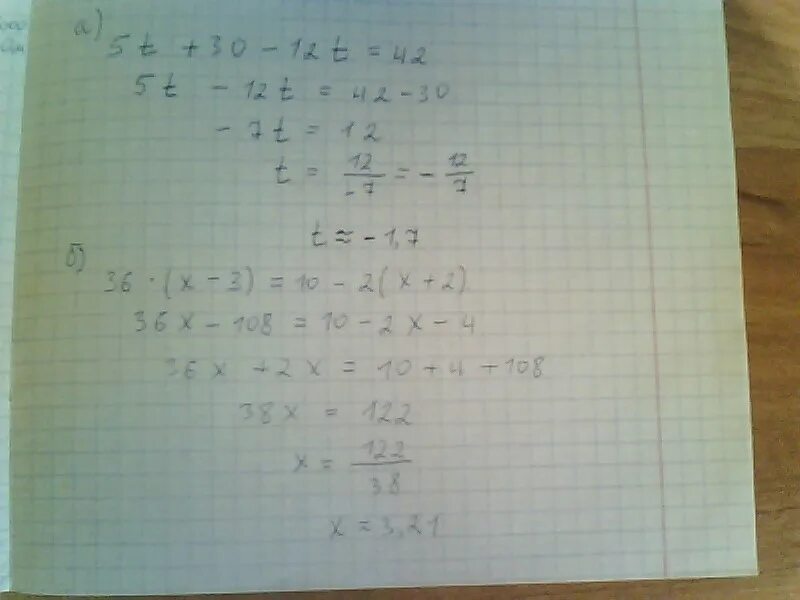 а)
5t + 30 - 12t = 42
5t - 12t = 42 - 30
- 7t = 12
t = 12/-7 = - 12/7
t ≈ - 1,7
б)
36 · (x - 3) = 10 - 2(x + 2)
36x - 108 = 10 - 2x - 4
36x + 2x = 10 + 4 + 108
38x = 122
x = 122/38
x ≈ 3,21